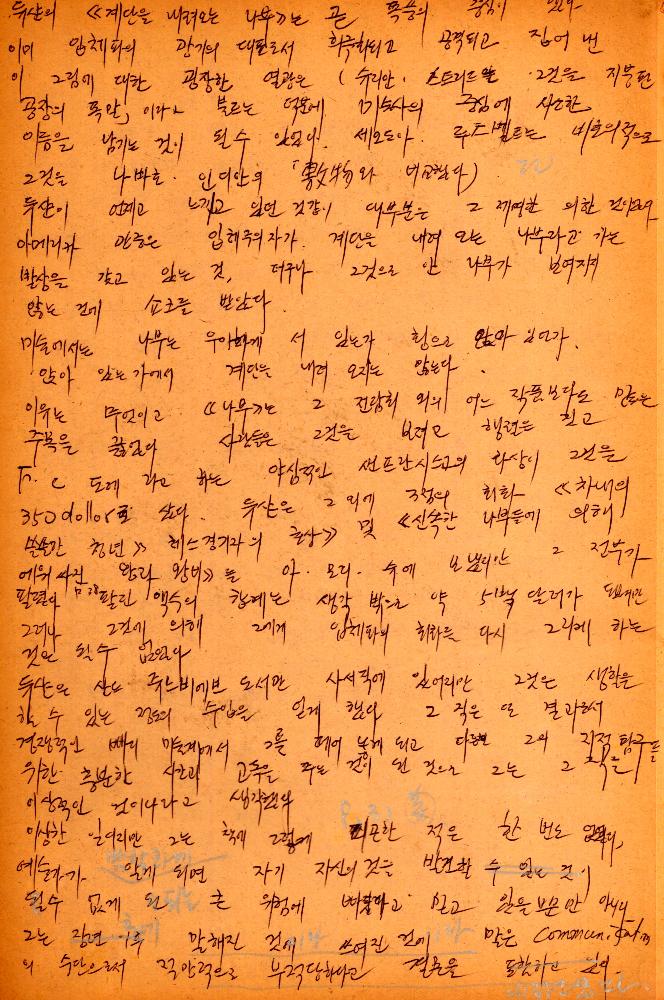 뒤샹의 《계단을 내려오는 나부》는 곧 폭풍의 중심이
이미 입체파의 광기의 대표로서 희극화되고 공격되고 집어 낸
이 그림에 대한 굉장한 열광은 ( 그것을 지붕판
공장의 폭발, 이라고 부르는 덕분에 기사의 중심에 사소한
이름을 남기는 것이 될 수 있었다. 세오도아. 루즈벨트는 비호의적으로
그것을 나바호. 인디안의 「敷物와 비교했다)
뒤샹이 언제고 느끼고 있던 것같이 대부분은 그 제명에 의한 것이며
아메리카 관중은 입체주의자가 계단을 내려 오는 나부라고 가는
발상을 갖고 있는 것, 더구나 그것으로 안 나부가 보여지지
않는 것에 쇼크를 받았다
미술에서는 나부는 우아하게 서 있는가 힘으로 앉아 있어가.
앉아 있는가에서 계단을 내려 오지는 않는다.
이유는 무엇이고 《나부》는 그 전람회 외의 어느 작품보다도 많은
주목을 끌었다 사람들은 그것을 보려고 행렬은 짓고
F. C 도에 라고 하는 야심적인 썬프란시스코의 화상이 그것을
350 dollor로 샀다. 뒤샹은 그 외에 3점의 회화 《차내의
쓸쓸한 청년》 체스경기자의 초상》 및 《신속한 나부들에 의해
에워싸진 왕과 왕비》를 아. 모리. 쇼에 보냈지만 그 전부가
팔렸다 팔린 액수의 합계는 생각 밖으로 약 5백 달러가 되지만
그러나 그것에 의해 그에게 입체파의 회화를 다시 그리게 하는
것은 될 수 없었다
뒤샹은 산트 쥬느비에브 도서관 사서직에 있어지만 그것은 생활을
할 수 있는 정도의 수입을 얻게 했다 그 직은 또 결과로서
경쟁적인 빠리 미술계에서 그를 떼어 놓게 되고 다른 그의 지적 탐구를
위한 충분한 시간과 고독을 주는 것이 된 것으로 그는 그 직을
이상적인 것이나라고 생각했다
이상한 일이지만 그는 책에 그렇게 피곤한 적은 한 번도 없었다,
예술가가 알게 되면 자기 자신의 것을 발견할 수 있는 것이
될 수 없게 된다는 큰 위험에 빠진다고 믿고 있을 뿐만 아니라
그는 장면 가득 말해진 것이나 쓰여진 것이 많은 Communication
의 수단으로서 직안적으로 부적당하다고 결론을 도달하고 있다.